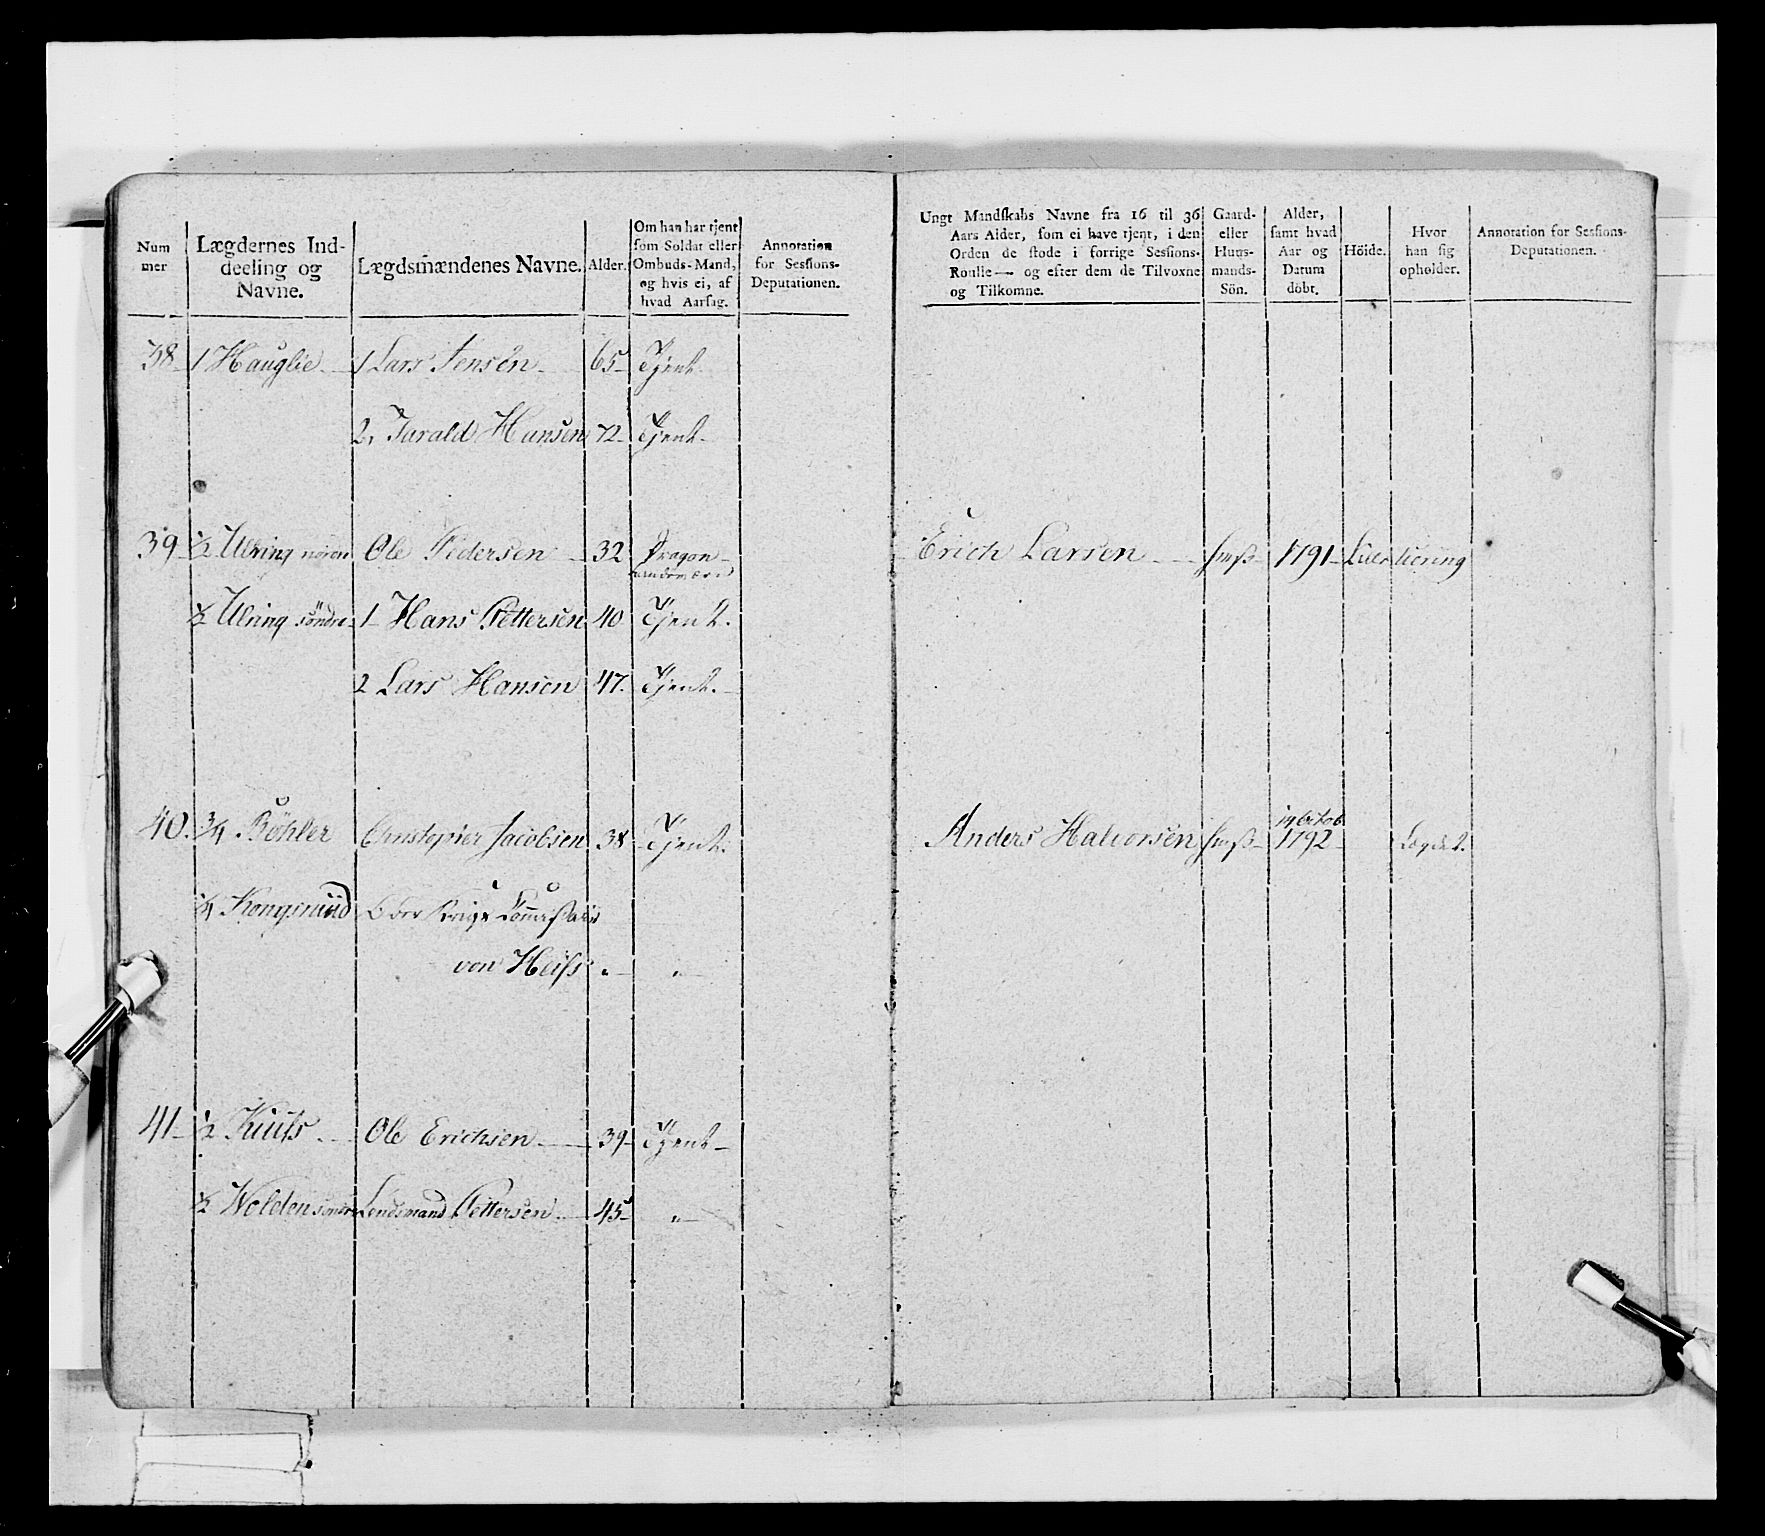 Num
mer
Lægdernes Ind-
deeling og
Navne.
Lægdsmændenes Navne.
Alder.
Om han har tjent
som Soldat eller
Ombuds-Mand,
og hvis ei, af
hvad Aarsag.
Annotation
for Sessions-
Deputationen.
38 1 Hauglie 1 Lars Jensen 65 Tjent
2, Harald Hansen 72 Tjent
39 ½ Ulring nøren Ole Pedersen 32 Dragon
Landeværn
½ Ulring søndre 1 Hans Pettersen 40 Tjent.
2 Lars Hansen 47. Tjent.
40. ¾ Böhler Christopher Jacobsen 38 Tjent.
¼ Kongsrüüd Ober Krigs Commissair
von Heiss " "
41 ½ Kuuss Ole Erichsen 39 Tjent
½ Wolden søndre Lendsmand Pettersen 45 "
Ungt Mandskabs Navne fra 16 til 36
Aars Alder, som ei have tjent, i den
Orden de stode i forrige Sessions-
Roulle — og efter dem de Tilvoxne
og Tilkomne.
Gaard-
eller
Huus-
mands-
Sön.
Alder,
samt hvad
Aar og
Datum
döbt.
Höide.
Hvor
han sig
opholder.
Annotation for Sessions-
Deputationen.
Erich Larsen 1791
Anders Halvorsen 1792 Lægdet.